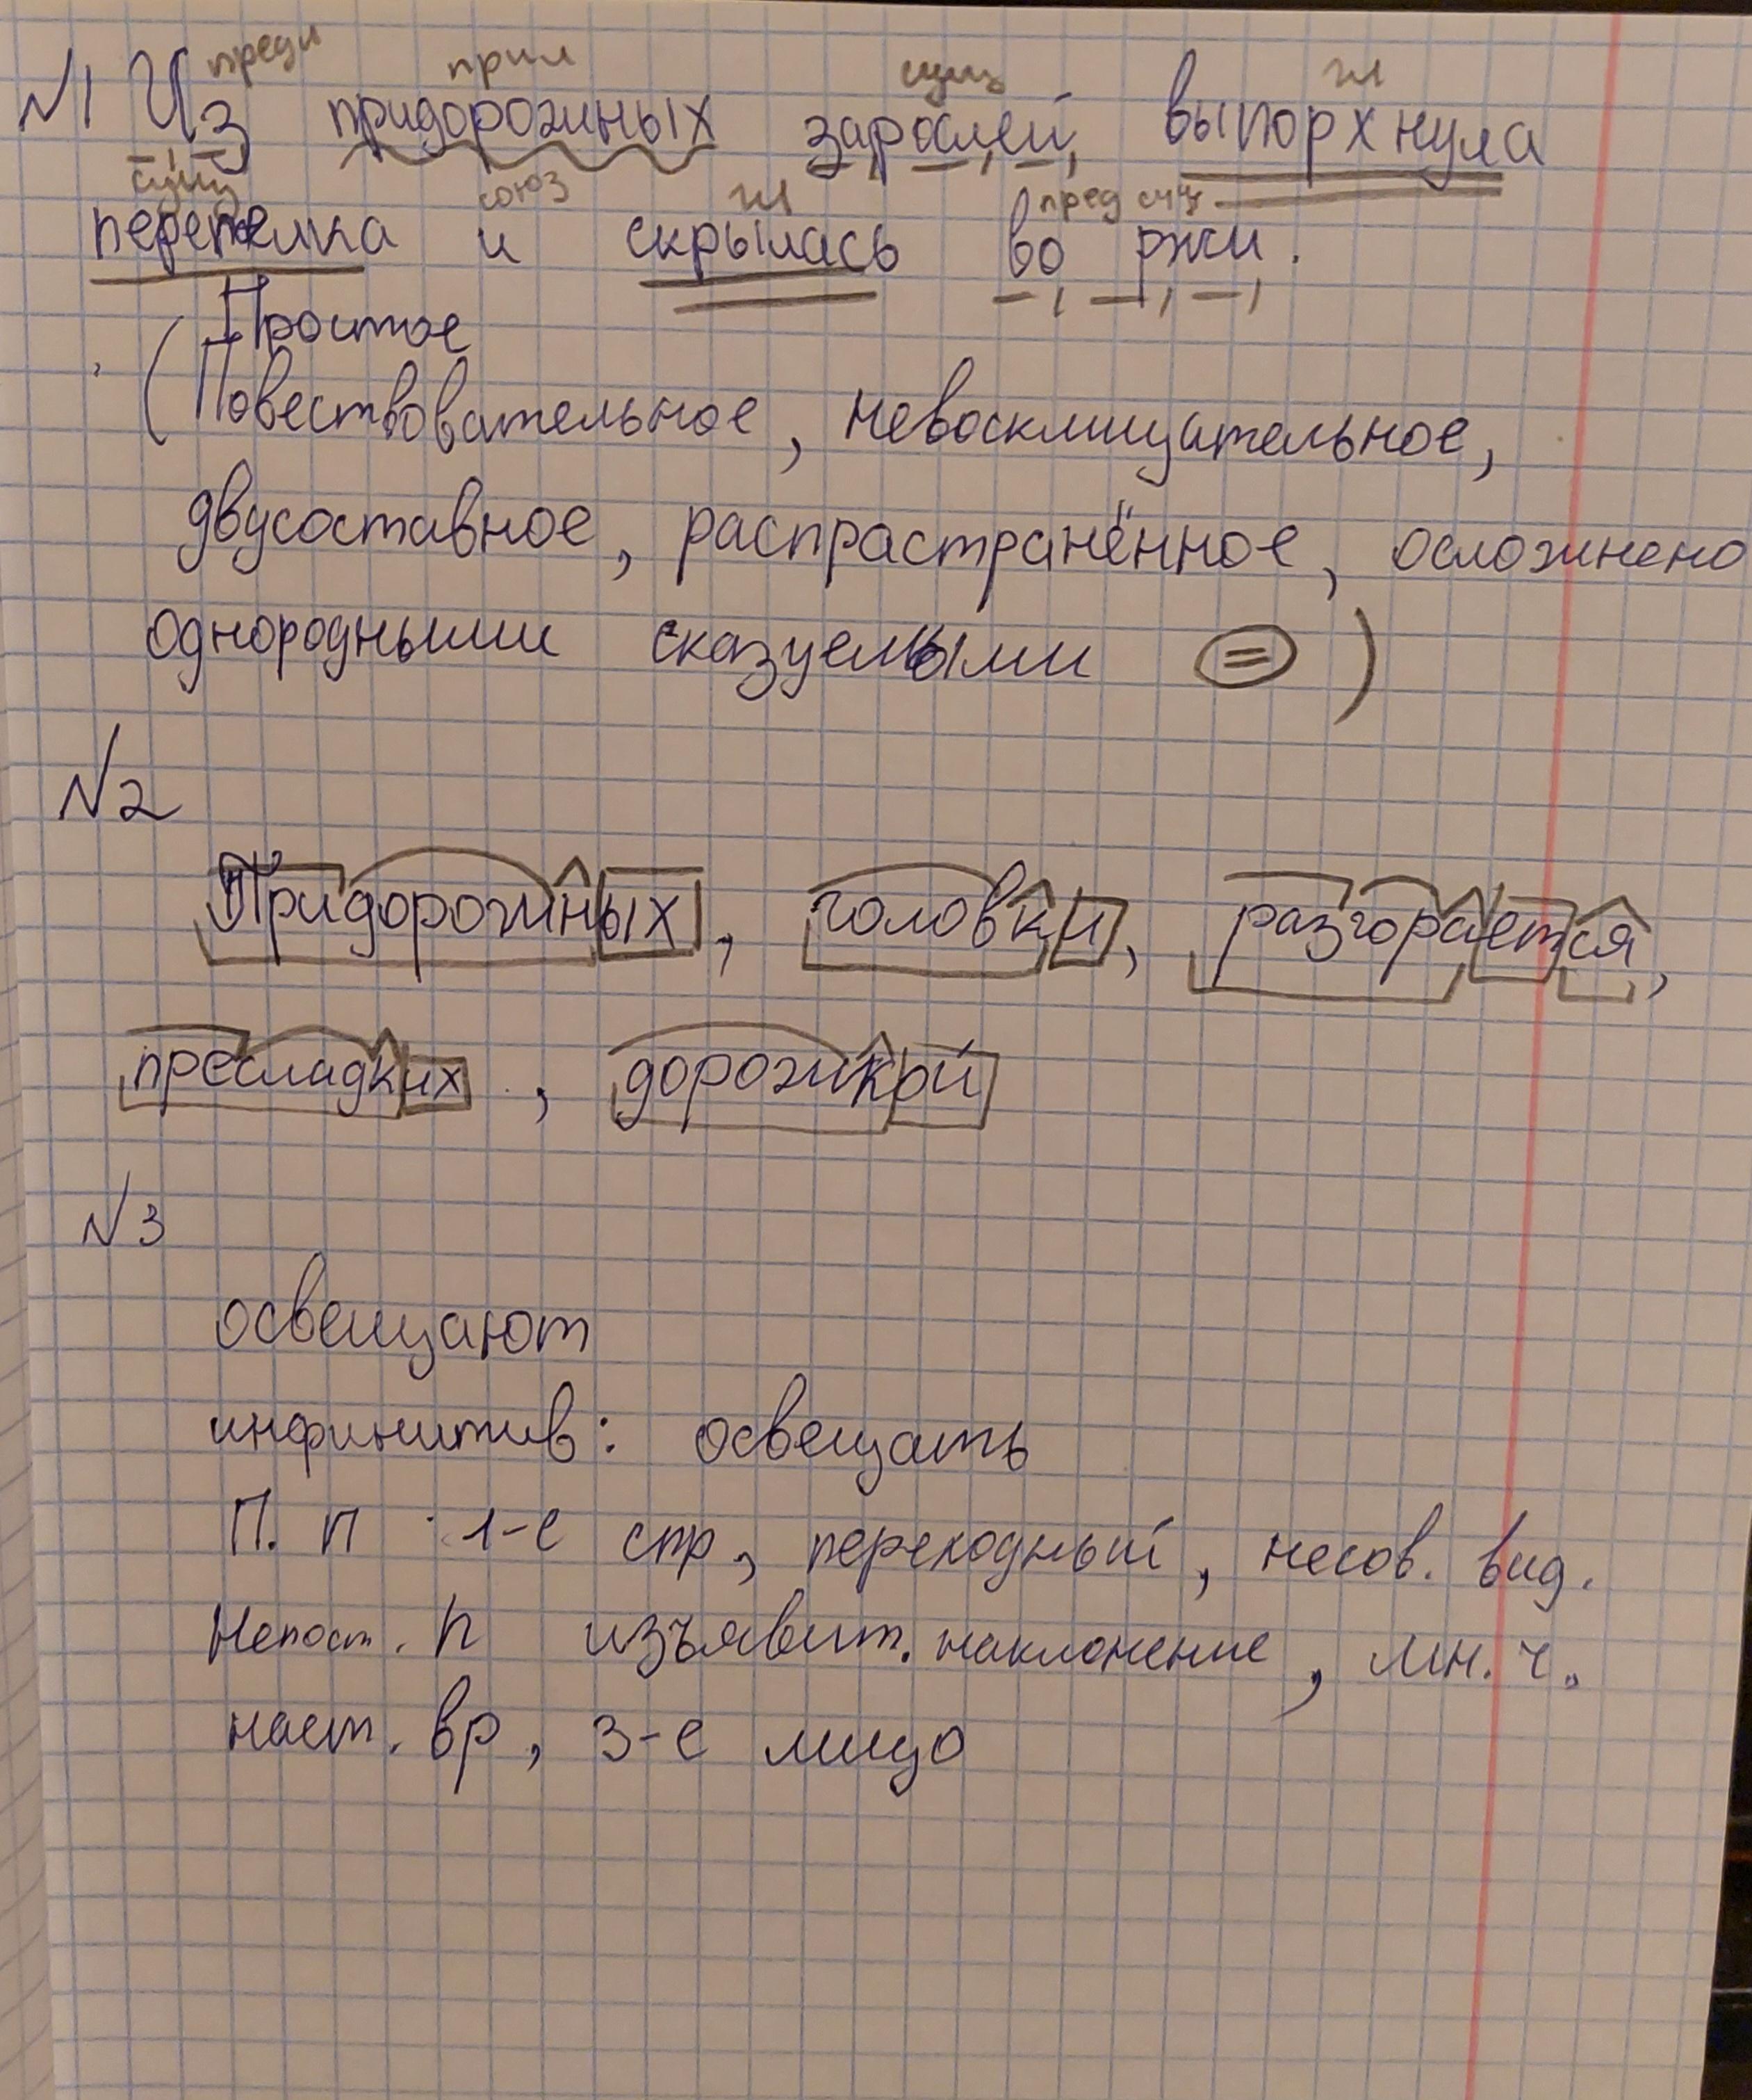 предл прил сущ гл
№1 Из придорожных зарослей выпорхнула
сущ союз гл пред сущ
перепелка и скрылась во ржи.
Простое
(Повествовательное, невосклицательное,
двусоставное, распрастранённое, осложнено
однородными сказуемыми =)
№2
Придорожных, головки, разгорается,
пресладких, дорожкой
№3
освещают
инфинитив: освещать
П. п 1-е спр, переходный, несов. вид.
Непост. п изъявит. наклонение, мн. ч.
наст. вр, 3-е лицо